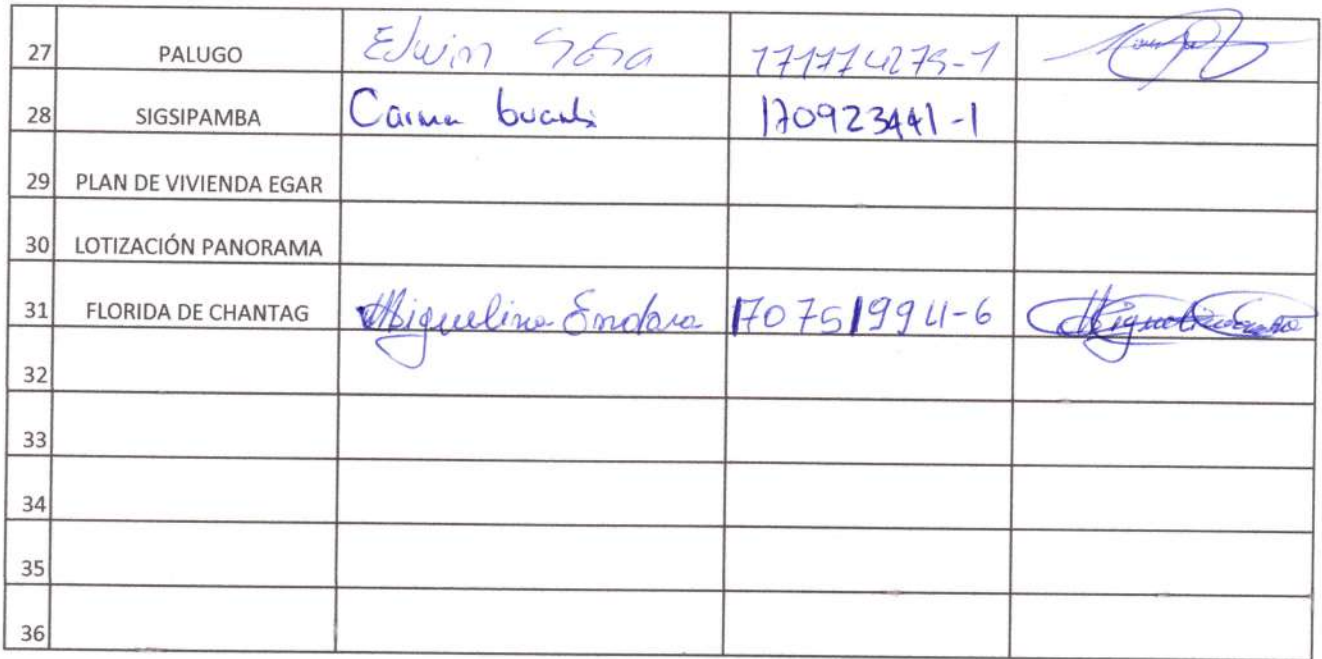 27 PALUGO Edwin Sosa 171174275-1
28 SIGSIPAMBA 170923441-1
29 PLAN DE VIVIENDA EGAR
30 LOTIZACIÓN PANORAMA
31 FLORIDA DE CHANTAG Miguelina Endara 170751994-6
32
33
34
35
36